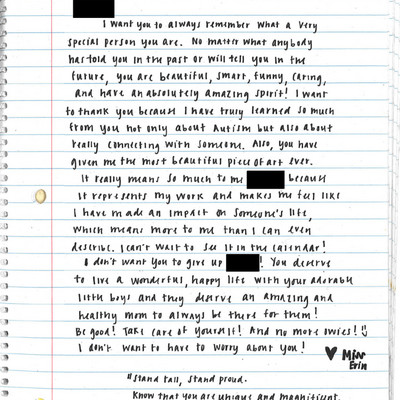 I want you to always remember what a very
special person you are. No matter what anybody
has told you in the past or will tell you in the
future, you are beautiful, smart, funny, caring,
and have an absolutely amazing spirit! I want
to thank you because I have truly learned so much
from you not only about Autism but also about
really connecting with someone. Also, you have
given me the most beautiful piece of art ever.
It really means so much to me because
it represents my work and makes me feel like
I have made an impact on someone's life,
which means more to me than I can even
describe. I can't wait to see it in the calendar!
I don't want you to give up ! You deserve
to live a wonderful, happy life with your adorable
little boys and they deserve an amazing and
healthy mom to always be there for them!
Be good! Take care of yourself! And no more owies!
I don't want to have to worry about you!
♥ Miss
Erin
"Stand tall, stand proud.
Know that you are unique and magnificent.